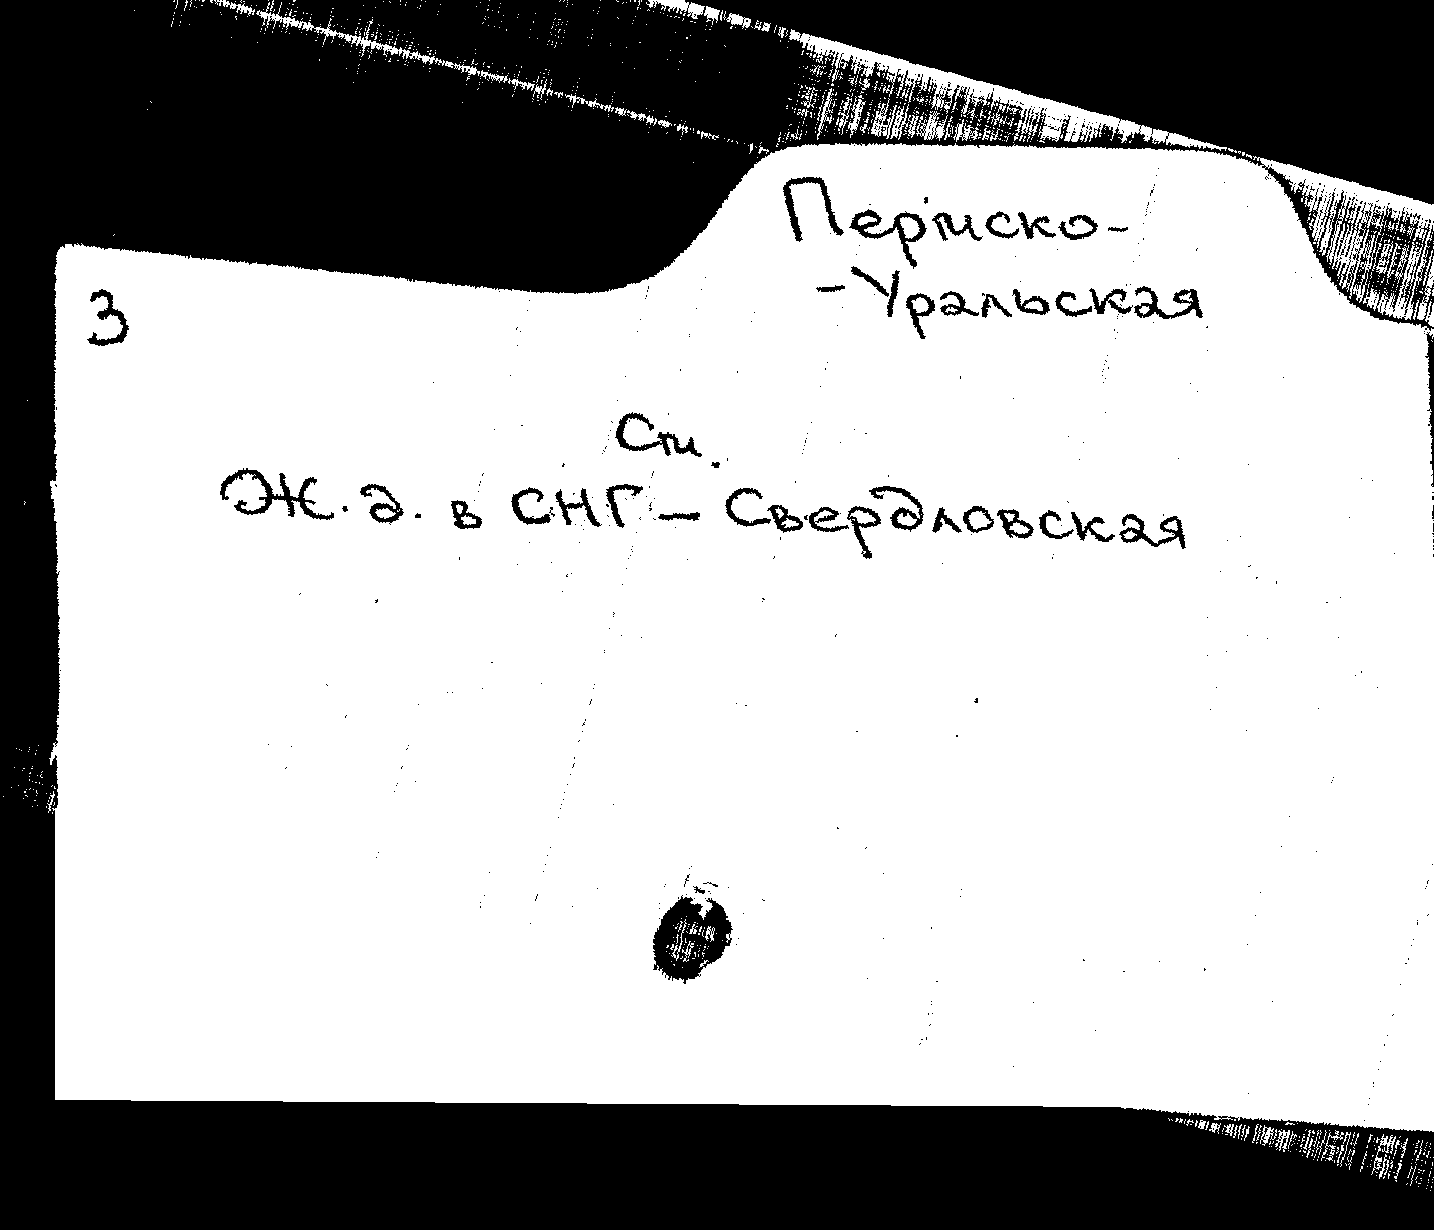 Пермско-
-Уральская
3
См.
Ж.д. в СНГ - Свердловская